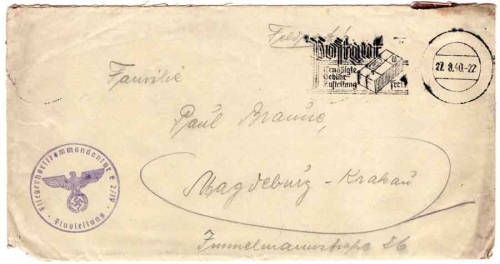 Feldpost
Postgut
ermäßigte
Gebühr
Zustellung frei!
27.8.40.-22
Familie
Paul Braune,
Magdeburg-Krakau
Immelmannstraße 26
Fliegerhorstkommandantur E 2/IV